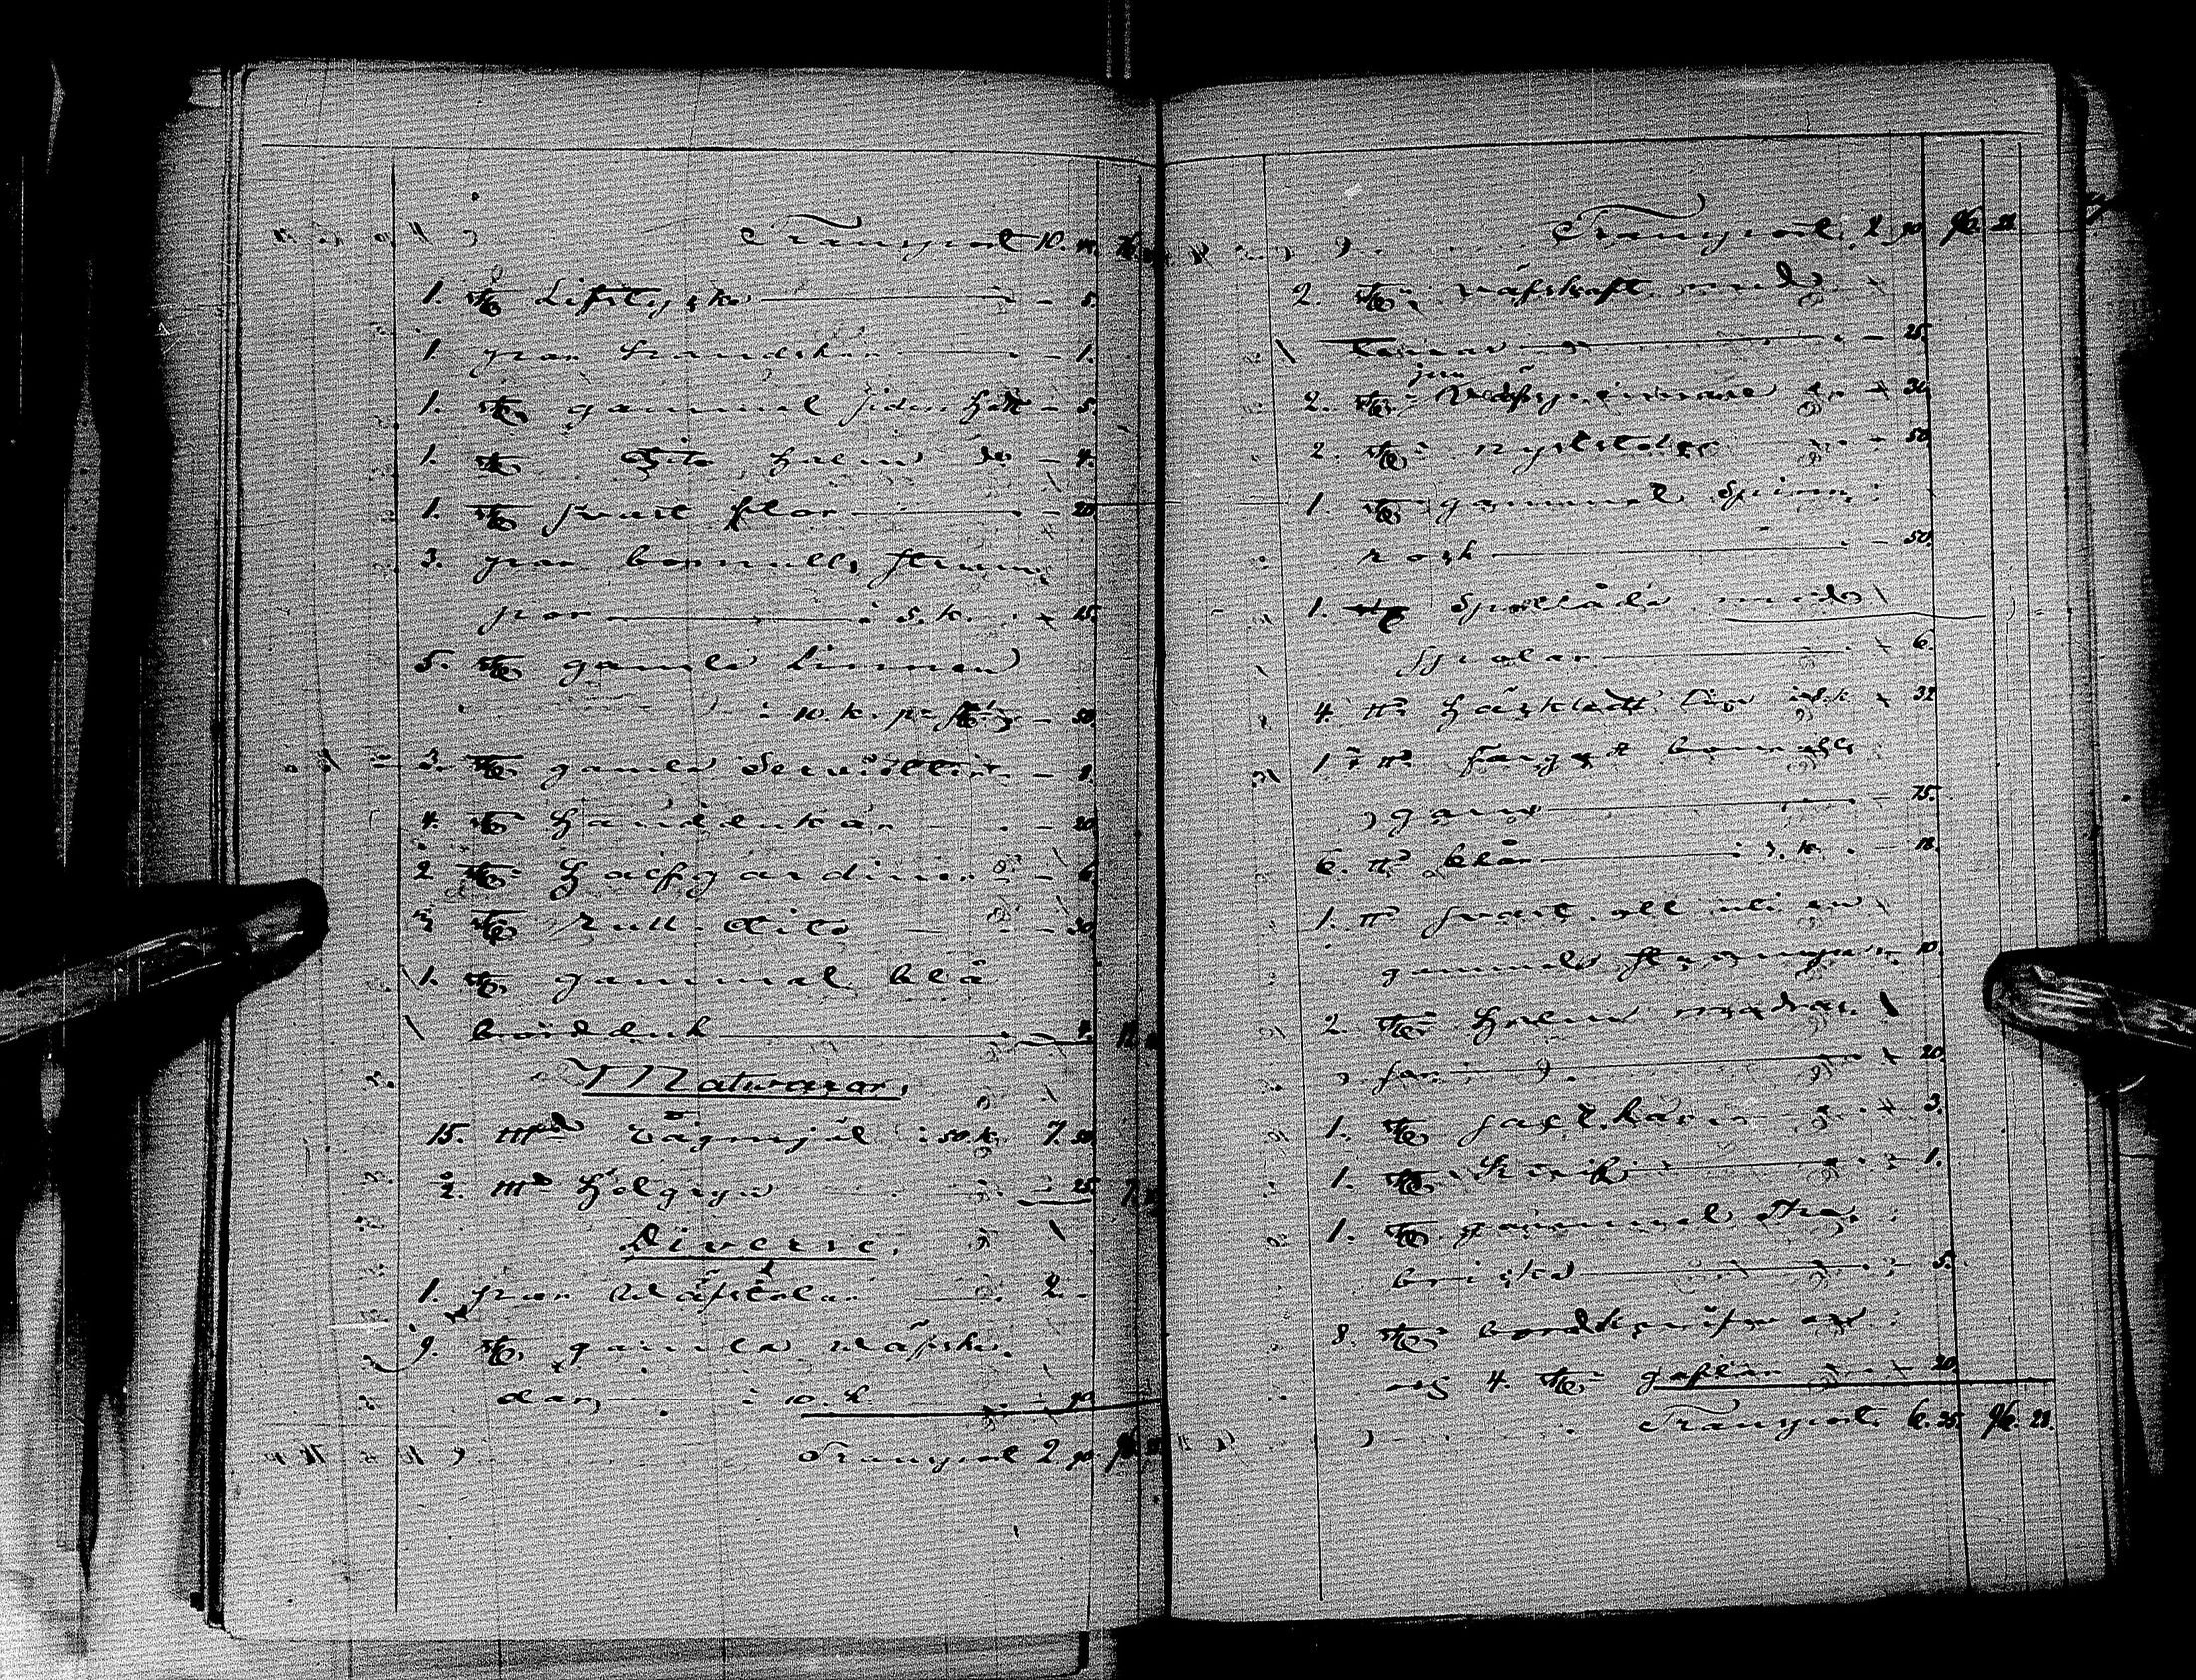 Transport 10.
1. st Lifstycke — 5.
1. par handskar — 1.
1. st gammal siden hatt — 5.
1. st Dito halm do — 4.
1. st svart flor — 20
3. par bomulls strum
por — à 5. k. — 15.
5. st gamla Linnen
à 10. k. pr st — 50
3. st gamla Servietter —
4. st handdukar — 20
2 st Halfgardiner — 6
st Rull- dito — 30
1. st gammal blå
bordduk —
Matwaror.
15. Rågmjöl à 50 k. 7.50
2. Helgryn — 25
Diverse.
1. par Wäfstolar — 2.
9. st gamla wäfske-
dar, — à 10. k. — 90
Transport 2 90.
Transport. 2 90. 96. 23.
2. st wäfskaft med
— 25.
2. st — 30.
2. st nystetolar — 50
1. st gammal Spinn-
rock — 50.
1. st Spollåda med
spolar — 6.
4. ℔ Häckladt lin à 8. k. — 32
1 ℔ färgat bomulls
garn — 75.
6. ℔ blår — à 3. k. — 18.
1. ℔ svart ull uti en
gammal strumpa — 10.
2. st Halm madras-
ser — 20.
1. st saltkar — 3.
1. st — 1.
1. st gammal Stry-
bricka — 5.
8. st bordknifvar
och 4. st gaflar — 20
Transport 6.25 96. 23.